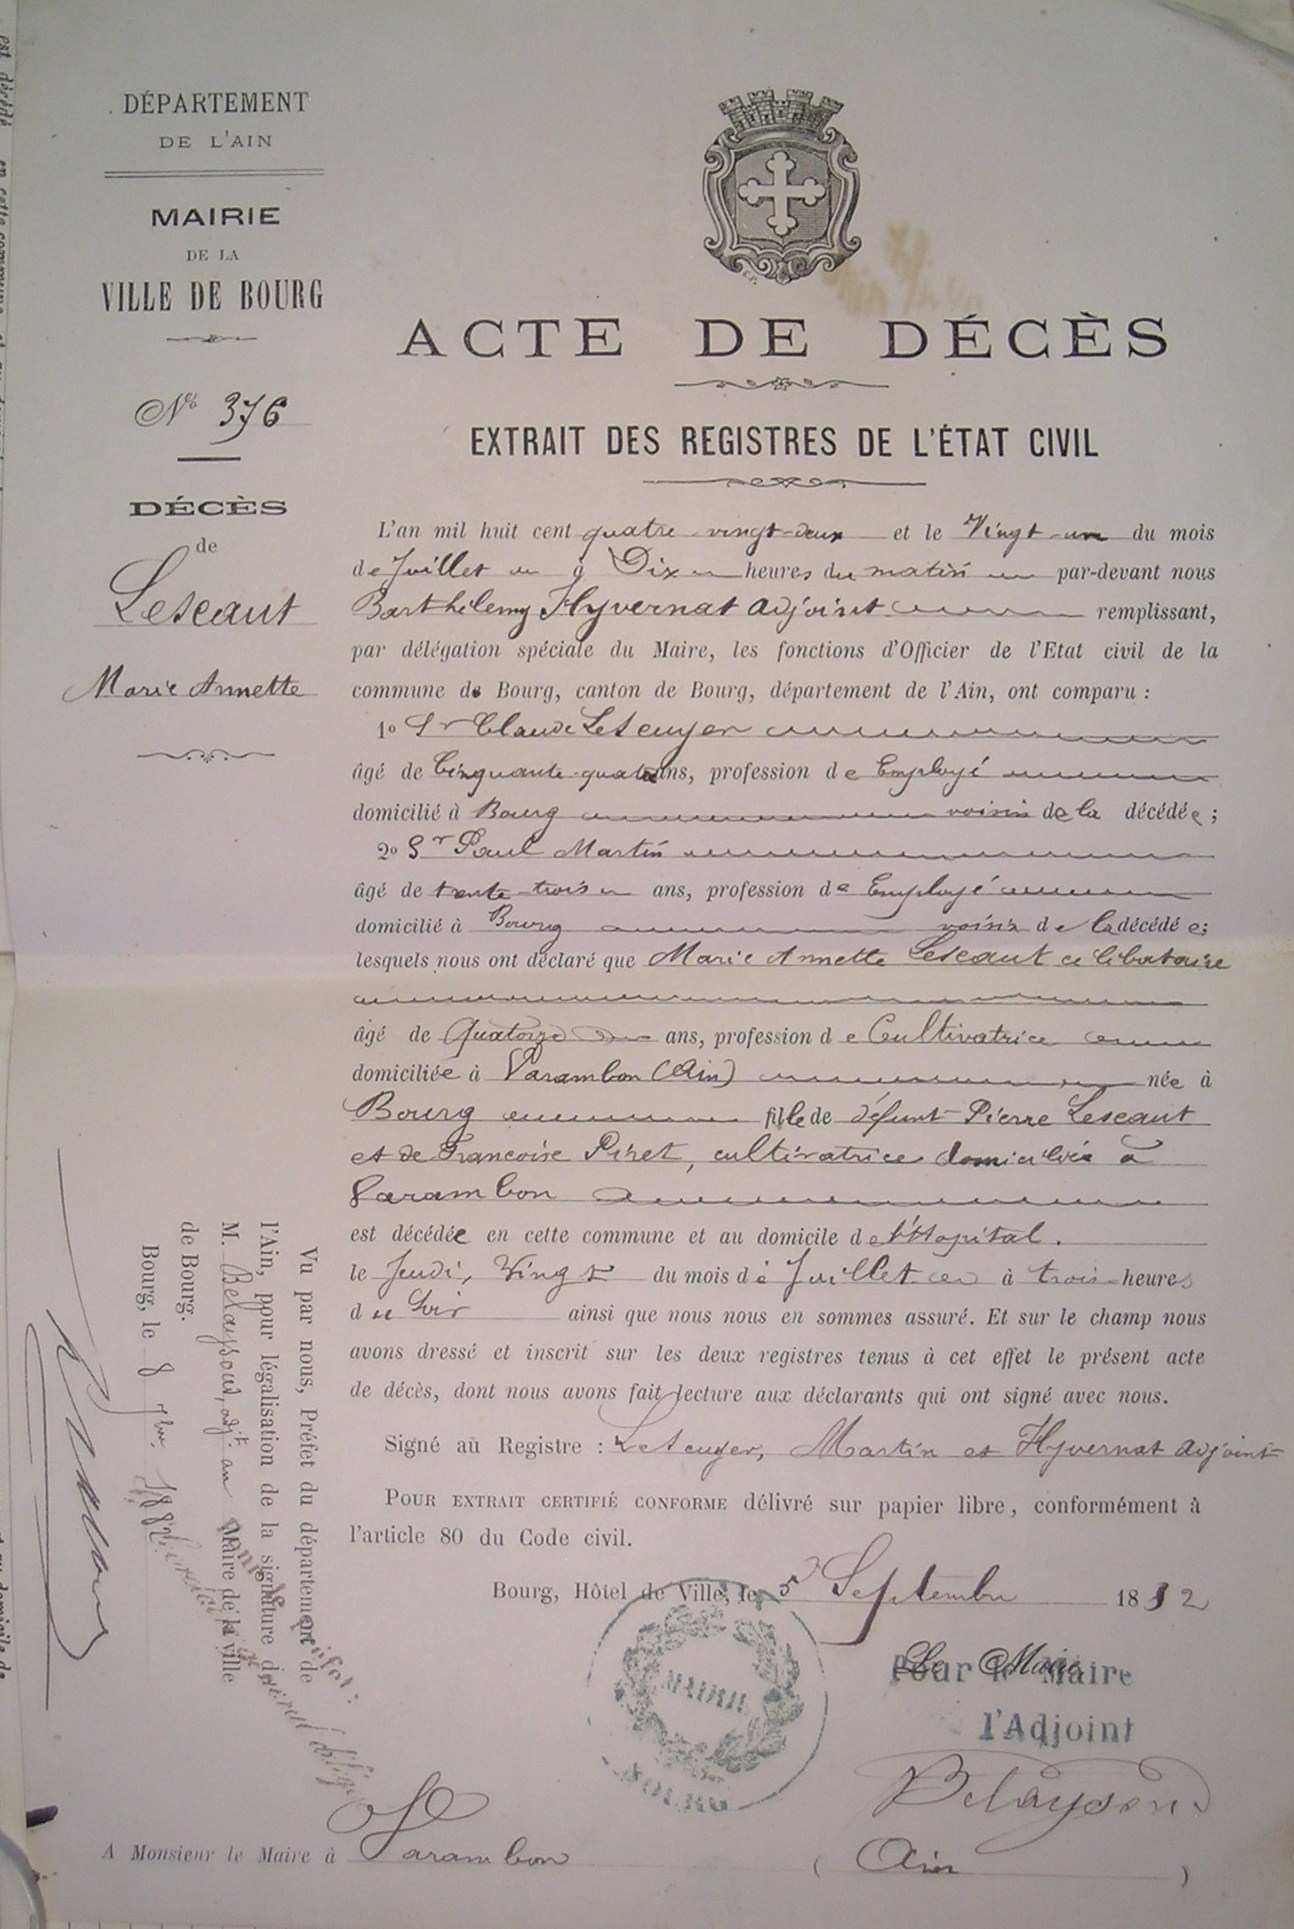 DÉPARTEMENT
DE L'AIN
MAIRIE
DE LA
VILLE DE BOURG
No 376
DÉCÈS
de
Lescaut
Marie Annette
ACTE DE DÉCÈS
EXTRAIT DES REGISTRES DE L'ÉTAT CIVIL
L'an mil huit cent quatre-vingt-deux et le Vingt-un du mois
de Juillet à Dix heures du matin par-devant nous
Barthélemy Hyvernat adjoint remplissant,
par délégation spéciale du Maire, les fonctions d'Officier de l'Etat civil de la
commune de Bourg, canton de Bourg, département de l'Ain, ont comparu :
1o Sr Claude Lescuyer
âgé de Cinquante-quatre ans, profession de Employé
domicilié à Bourg voisin de la décédée ;
2o Sr Paul Martin
âgé de trente-trois ans, profession de Employé
domicilié à Bourg voisin de la décédée ;
lesquels nous ont déclaré que Marie Annette Lescaut célibataire
âgé de Quatorze ans, profession de Cultivatrice
domiciliée à Varambon (Ain) née à
Bourg fille de défunt Pierre Lescaut
et de Francoise Piret, cultivatrice domiciliée à
Varambon
est décédée en cette commune et au domicile de l'Hopital.
le Jeudi, Vingt du mois de Juillet à trois heures
du Soir ainsi que nous nous en sommes assuré. Et sur le champ nous
avons dressé et inscrit sur les deux registres tenus à cet effet le présent acte
de décès, dont nous avons fait lecture aux déclarants qui ont signé avec nous.
Signé au Registre : Lescuyer, Martin et Hyvernat adjoint
POUR EXTRAIT CERTIFIÉ CONFORME délivré sur papier libre, conformément à
l'article 80 du Code civil.
Bourg, Hôtel de Ville, le 5 Septembre 1882
Le Maire
Pour le Maire
l'Adjoint
MAIRIE
BOURG
Belaysoud
A Monsieur le Maire à Varambon (Ain)
Vu par nous, Préfet du département de
l'Ain, pour légalisation de la signature de
M. Belaysoud, adjt. au Maire de la ville
de Bourg.
Bourg, le 8 7bre 1882